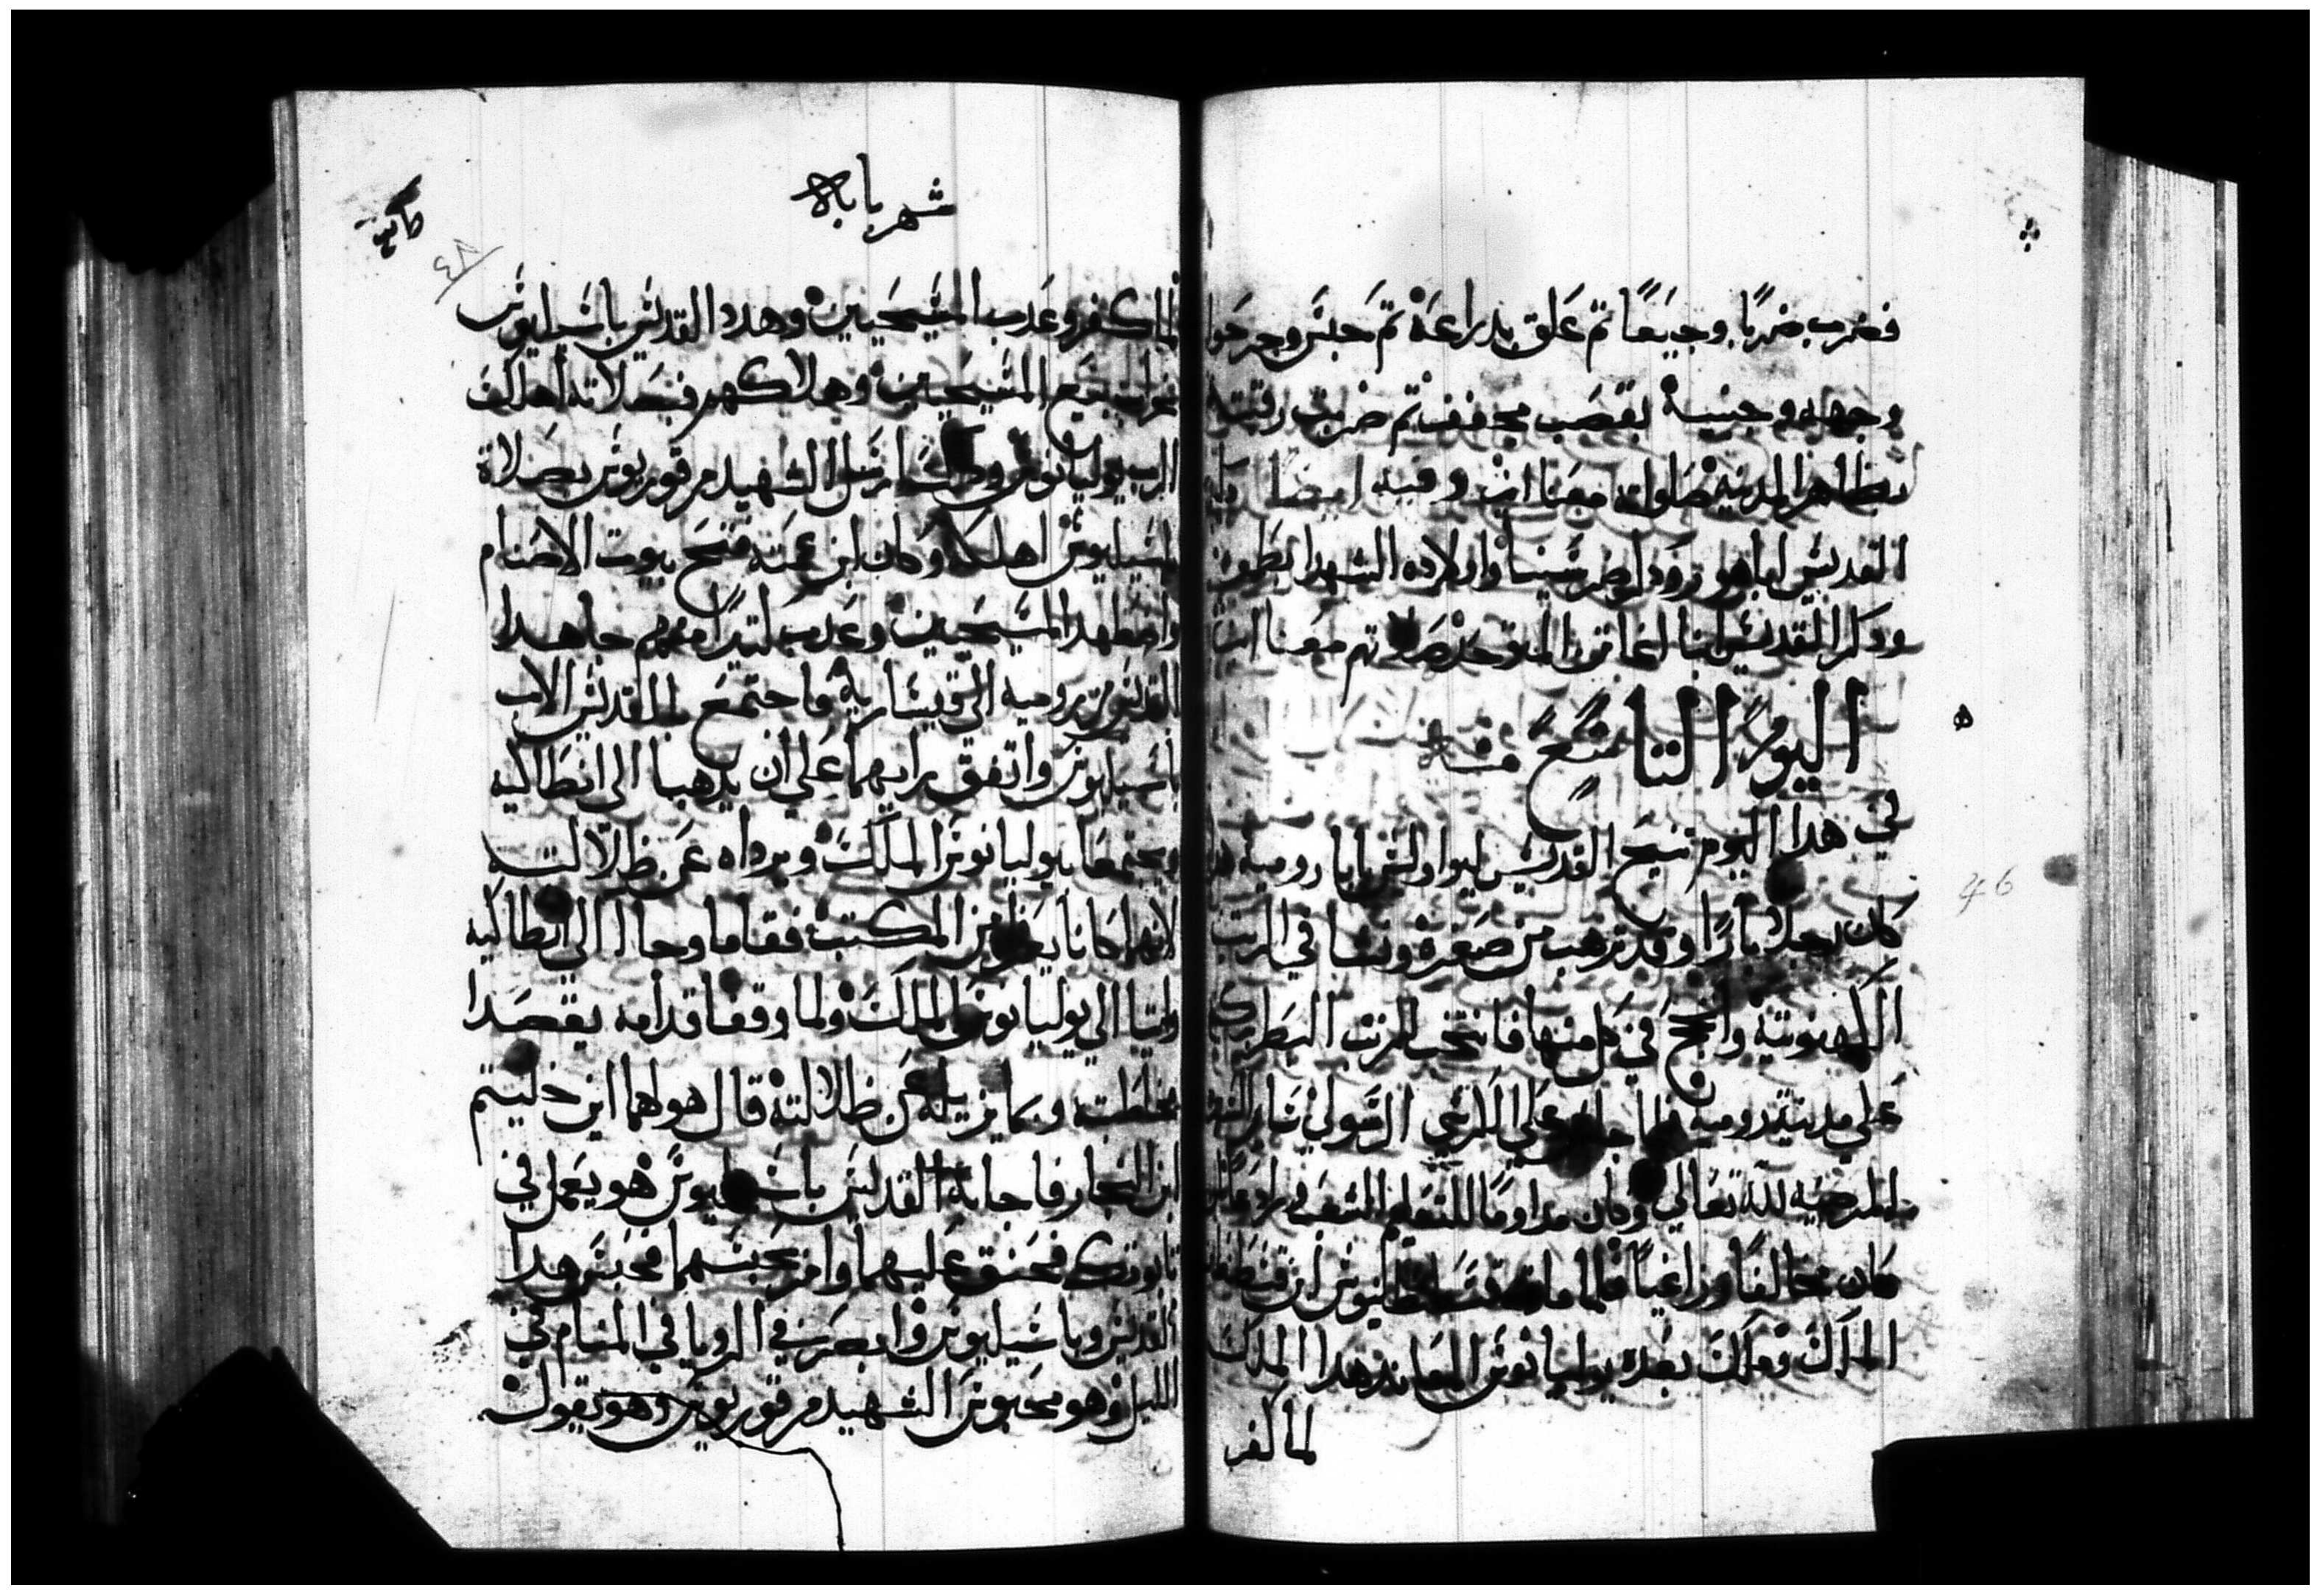 فضرب ضربًا وجيعًا تم علق بدراعة تم حبس وجرحوا
وجهه وجنبية بقصب مجففف تم ضربت رقبته
بظاهر المدينه صلواته معنا امين وفيه ايضا
القديس اباهور ودلوطرسينا واولاده الشهدا
ودكر القديس انبا اغاتون المتوحد صلاتهم معنا امين
اليوم التاسع منه
في هدا اليوم تنيح القديس ليواوالس بابا روميه
كان رجلا بارًا وقد ترهب من صغرة ونشا في الرتب
الكهنوتية وانجح في كل منها فانتخب للرتب البطركيه
علي مدينة روميه فلما جلس علي الكرسي الرسولي سار السيرة
المرضيه لله تعالي وكان مداومًا للتعليم الشعب
كان مخالفًا وزاغيًا فلما مات قسطنطينوس ابن قسطنطين
الملك وملك بعده يوليانوس المعاند هدا الملك
لما كفر
شهر بابه
٤٨
لما كفر وعدب المسيحيين وهدا القديس باسيليوس
جميع المسيحيين وهلاكهم فبصلاته اهلك
الرب يوليانوس ودلك ارسل الشهيد مرقوريوس بصلاة
باسيليوس اهلكه وكان ابن عمته فتح بيوت الاصنام
واضطهد المسيحيين وعدب كتيرًا منهم جا هدا
القديس من روميه الي قيساريه فاجتمع بالقديس الاب
باسيليوس واتفق رايهما علي ان يدهبا الي انطاكيه
ويجتمعا بيوليانوس الملك ويرداه عن ظلالته
لانهما كانا يعرفانه من المكتب فقاما وجاا الي انطاكيه
واتيا الي يوليانوس الملك ولما وقفا قدامه يقصدا
مخاطبته وبما يزيله عن ظلالته قال هو لهما اين خليتم
ابن النجار فاجابه القديس باسيليوس هو يعمل في
تابوتك فحنق عليهما وامر بحبسهما فحبس هدا
القديس وباسيليوس وابصر في الرويا في المنام في
الليل وهو محبوس الشهيد مرقوريوس وهو يقول
46